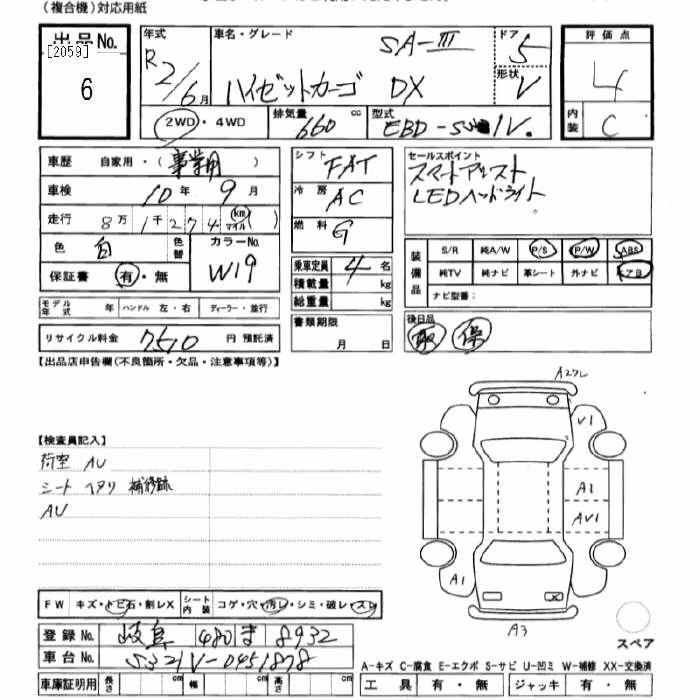 (複合機)対応用紙
出品No.
[2059]
6
年式
R2/6月
車名・グレード
SA-III
ハイゼットカーゴ DX
ドア
5
形状
V
評価点
4
内装
C
2WD・4WD
排気量
660 cc
型式
EBD-S321V.
車歴 自家用・(事業用)
車検 10年 9月
走行 8万 1千 2 7 4 (km マイル)
色 白 色替
カラーNo.
W19
保証書 有・無
モデル年式 年 ハンドル 左・右 ディーラー・並行
リサイクル料金 7510 円 預託済
シフト FAT
冷房 AC
燃料 G
乗車定員 4 名
積載量 kg
総重量 kg
書類期限
月 日
セールスポイント
スマートアシスト
LEDヘッドライト
装備品
S/R 純A/W P/S P/W ABS
純TV 純ナビ 革シート 外ナビ エアB
ナビ型番:
後日品
取 保
【出品店申告欄(不良箇所・欠品・注意事項等)】
【検査員記入】
荷室 AU
シート ヘタリ 補修跡
AU
A27L
V1
A1
AV1
A1
A3
スペア
FW キズ・トビ石・割レX シート内装 コゲ・穴・汚レ・シミ・破レ・スレ
登録No. 岐阜 480 ま 8932
車台No. S321V-0451878
A-キズ C-腐食 E-エクボ S-サビ U-凹ミ W-補修 XX-交換済
車庫証明用 長さ cm 幅 cm 高さ cm
工具 有・無 ジャッキ 有・無